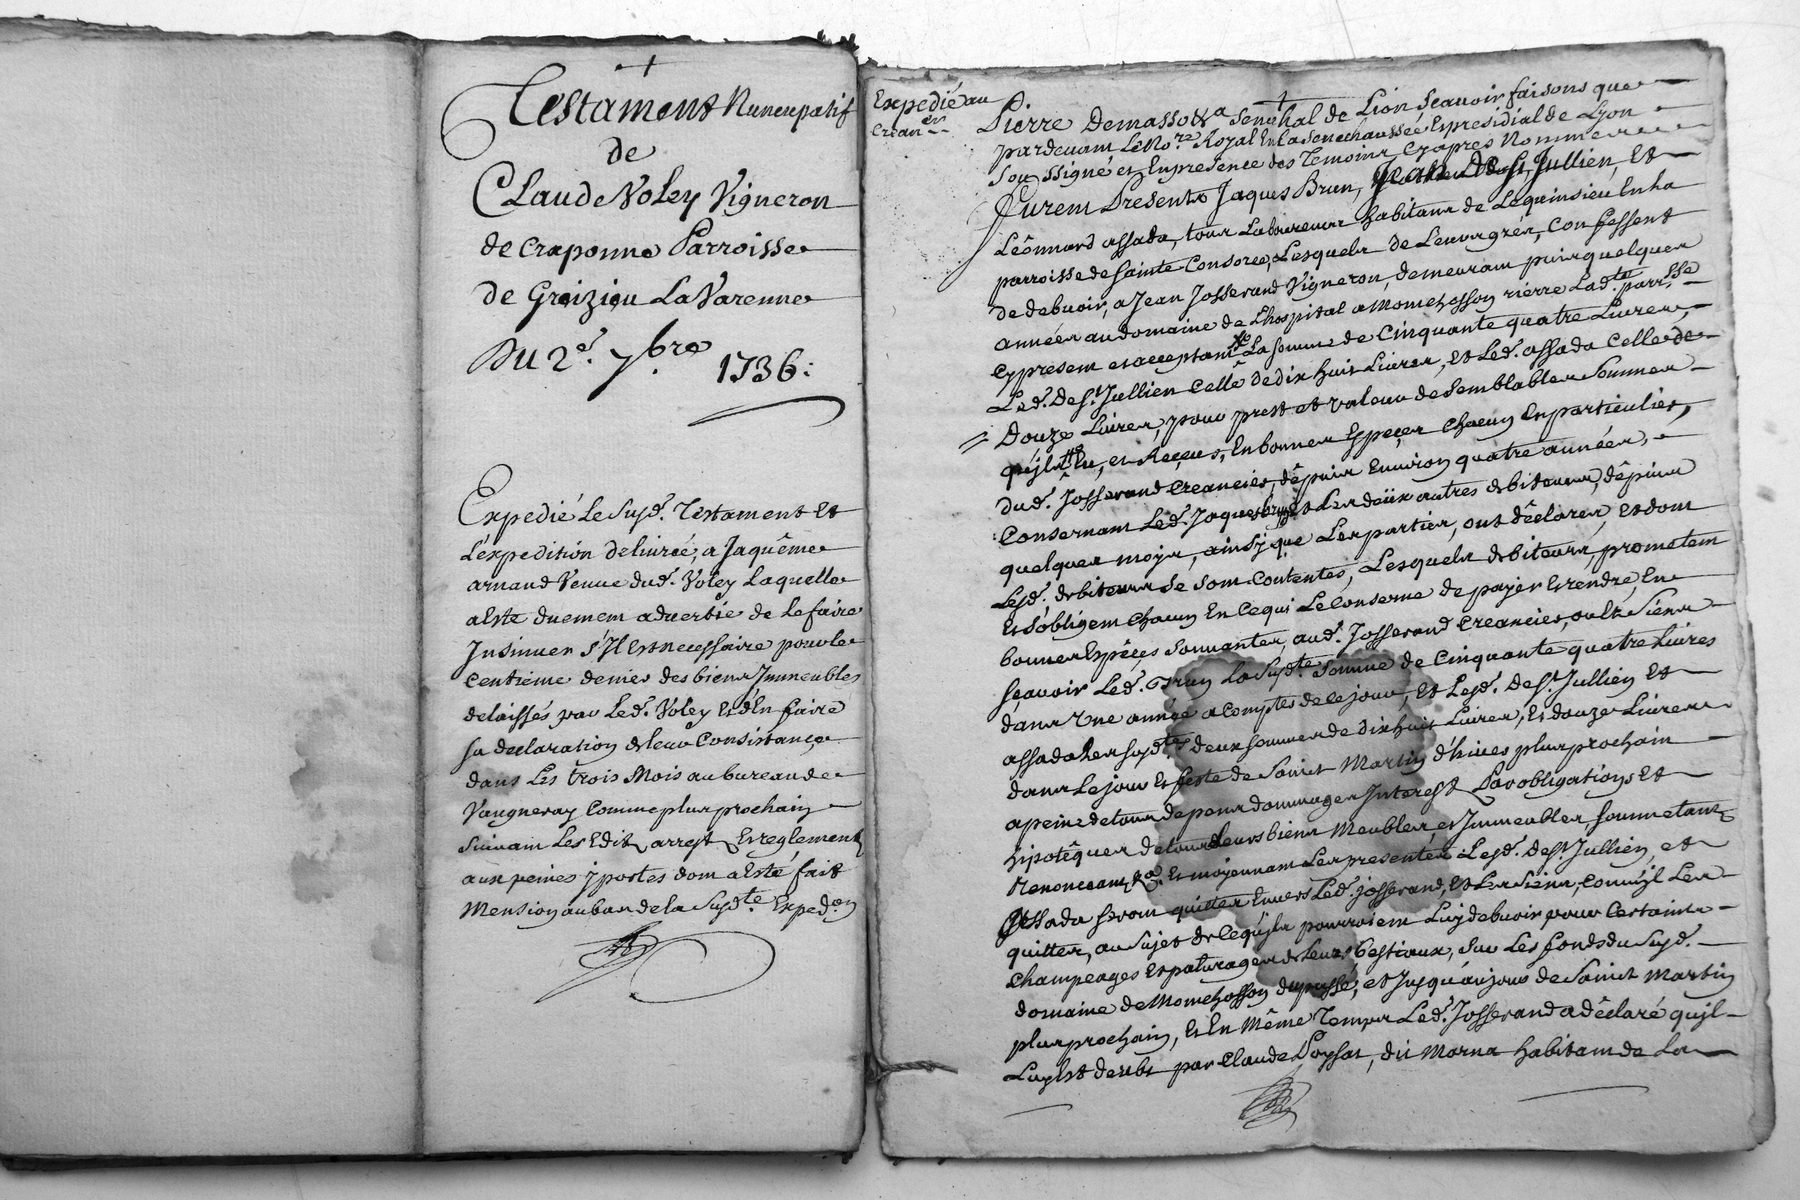 Testament Nuncupatif
de
Claude Voley Vigneron
de Craponne Parroisse
de Greizieu La Varenne
Du 2e. 7bre 1736:
Expedié Le Susd. Testament Et
L'expedition deliurée, a Jaquême
arnaud Veuue dud. Voley Laquelle
a Esté duement aduertie de Le faire
Insinuer s'Il Est necessaire pour le
Centieme denier des biens Immeubles
delaissés par Led. Voley Et d'En faire
sa declaration de leur Consistance
dans Les trois Mois au bureau de
Vaugneray Comme plus prochain
suiuant Les Edits, arrest Et reglements
aux peines y portés dont a Esté fait
Mension au bas de la Susdte. Expedon
Expedié au
crean.er
Pierre Demasso &a Senêchal de Lion Scauoir faisons que
pardeuant Le No.re Royal En La Senechaussée Et presidial de Lyon
Soussigné et En presence des Temoins Cy apres Nommés
furent Presents Jaques Brun, Jean De St. Jullien, Et
Leônnard assada, tous Laboureurs habitans de Lequinsieu En La
parroisse de Sainte Consorce, Lesquels de Leurs grés, Confessent
de debuoir, a Jean Josserand Vigneron, demeurant puis quelques
années au domaine de L'hospital a Montchosson rierre Ladte. parrsse
Cy present et acceptant La somme de Cinquante quatre Liures,
Led. De St. Jullien Celle de dix huit Liures, Et Led. assada Celle de
Douze Liures, pour prest et Valeur de Semblables Sommes
qu'jls ont Eu, et Reçeus, En bonnes Espeçes Chacun En particulier,
dud. Josserand Creancier, dêpuis Enuiron quatre années,
Consernant Led. Jaques brun Et Les deux autres debiteurs, dêpuis
quelques mois, ainsj que Les parties, ont dêclarés, Et dont
Lesd. debiteurs Se sont Contentés, Lesquels debiteurs, prometent
Et s'obligent Chacun En Ce qui Le Conserne de payer Et rendre, En
bonnes Espêçes Sonnantes, aud. Josserand Creancier, ou És Siens
scauoir Led. Brun La Susdte. Somme de Cinquante quatre Liures
dans Vne année a Compter de Ce jour, Et Lesd. De St. Jullien Et
assada Les susdtes deux sommes de dix huit Liures, Et douze Liures
dans Le jour Et feste de Saint Martin d'hiuer plus prochain
a peine de tous depens dommages Interest Par obligations Et
hipotêques de tous Leurs biens Meubles et Immeubles soumetant
Renonceant &a. Et moyennant Les presentes Lesd. De St. Jullien, et
assada seront quittes Enuers Led. josserand, Et Les siens, Comm'jl Les
quittes, au sujet de Ce qu'jls pourroient Luy debuoir pour Certains
Champeages Et paturages de Leurs bestiaux, Sur Les fonds du Susd.
domaine de Montchosson du passé, et Jusqu'au jour de Saint Martin
plus prochain, Et En Même Temps Led. Josserand a dêclaré qu'jl
Luy Est deub par Claude Poysat, dit Morna habitant de La